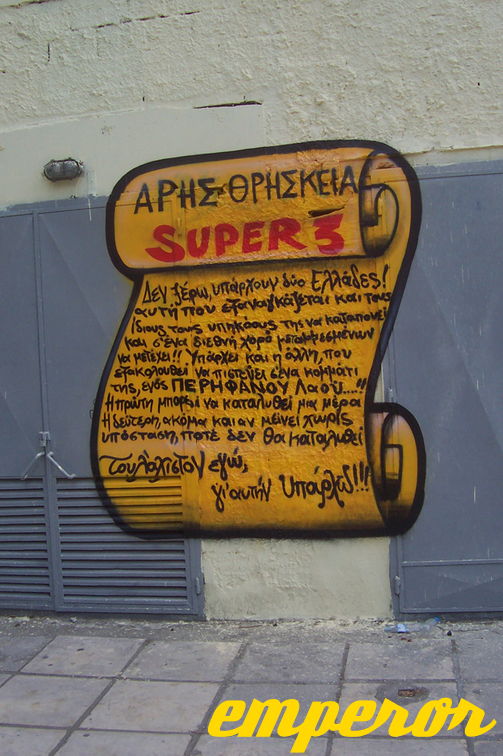 ΑΡΗΣ-ΘΡΗΣΚΕΙΑ
SUPER 3
Δεν ξέρω, υπάρχουν δύο Ελλάδες!
αυτή που εξαναγκάζεται και τους
ίδιους τους υπηκόους της να καταπονεί
και σ'ένα διεθνή χορό μεταμφιεσμένων
να μετέχει!! Υπάρχει και η άλλη, που
εξακολουθεί να πιστεύει σ'ένα κομμάτι
της, ενός ΠΕΡΗΦΑΝΟΥ Λαού.....!!
Η πρώτη μπορεί να καταλυθεί μια μέρα
Η δεύτερη, ακόμα και αν μείνει χωρίς
υπόσταση, ποτέ δεν θα καταλυθεί
τουλάχιστον εγώ,
γι'αυτήν Υπάρχω!!!
emperor